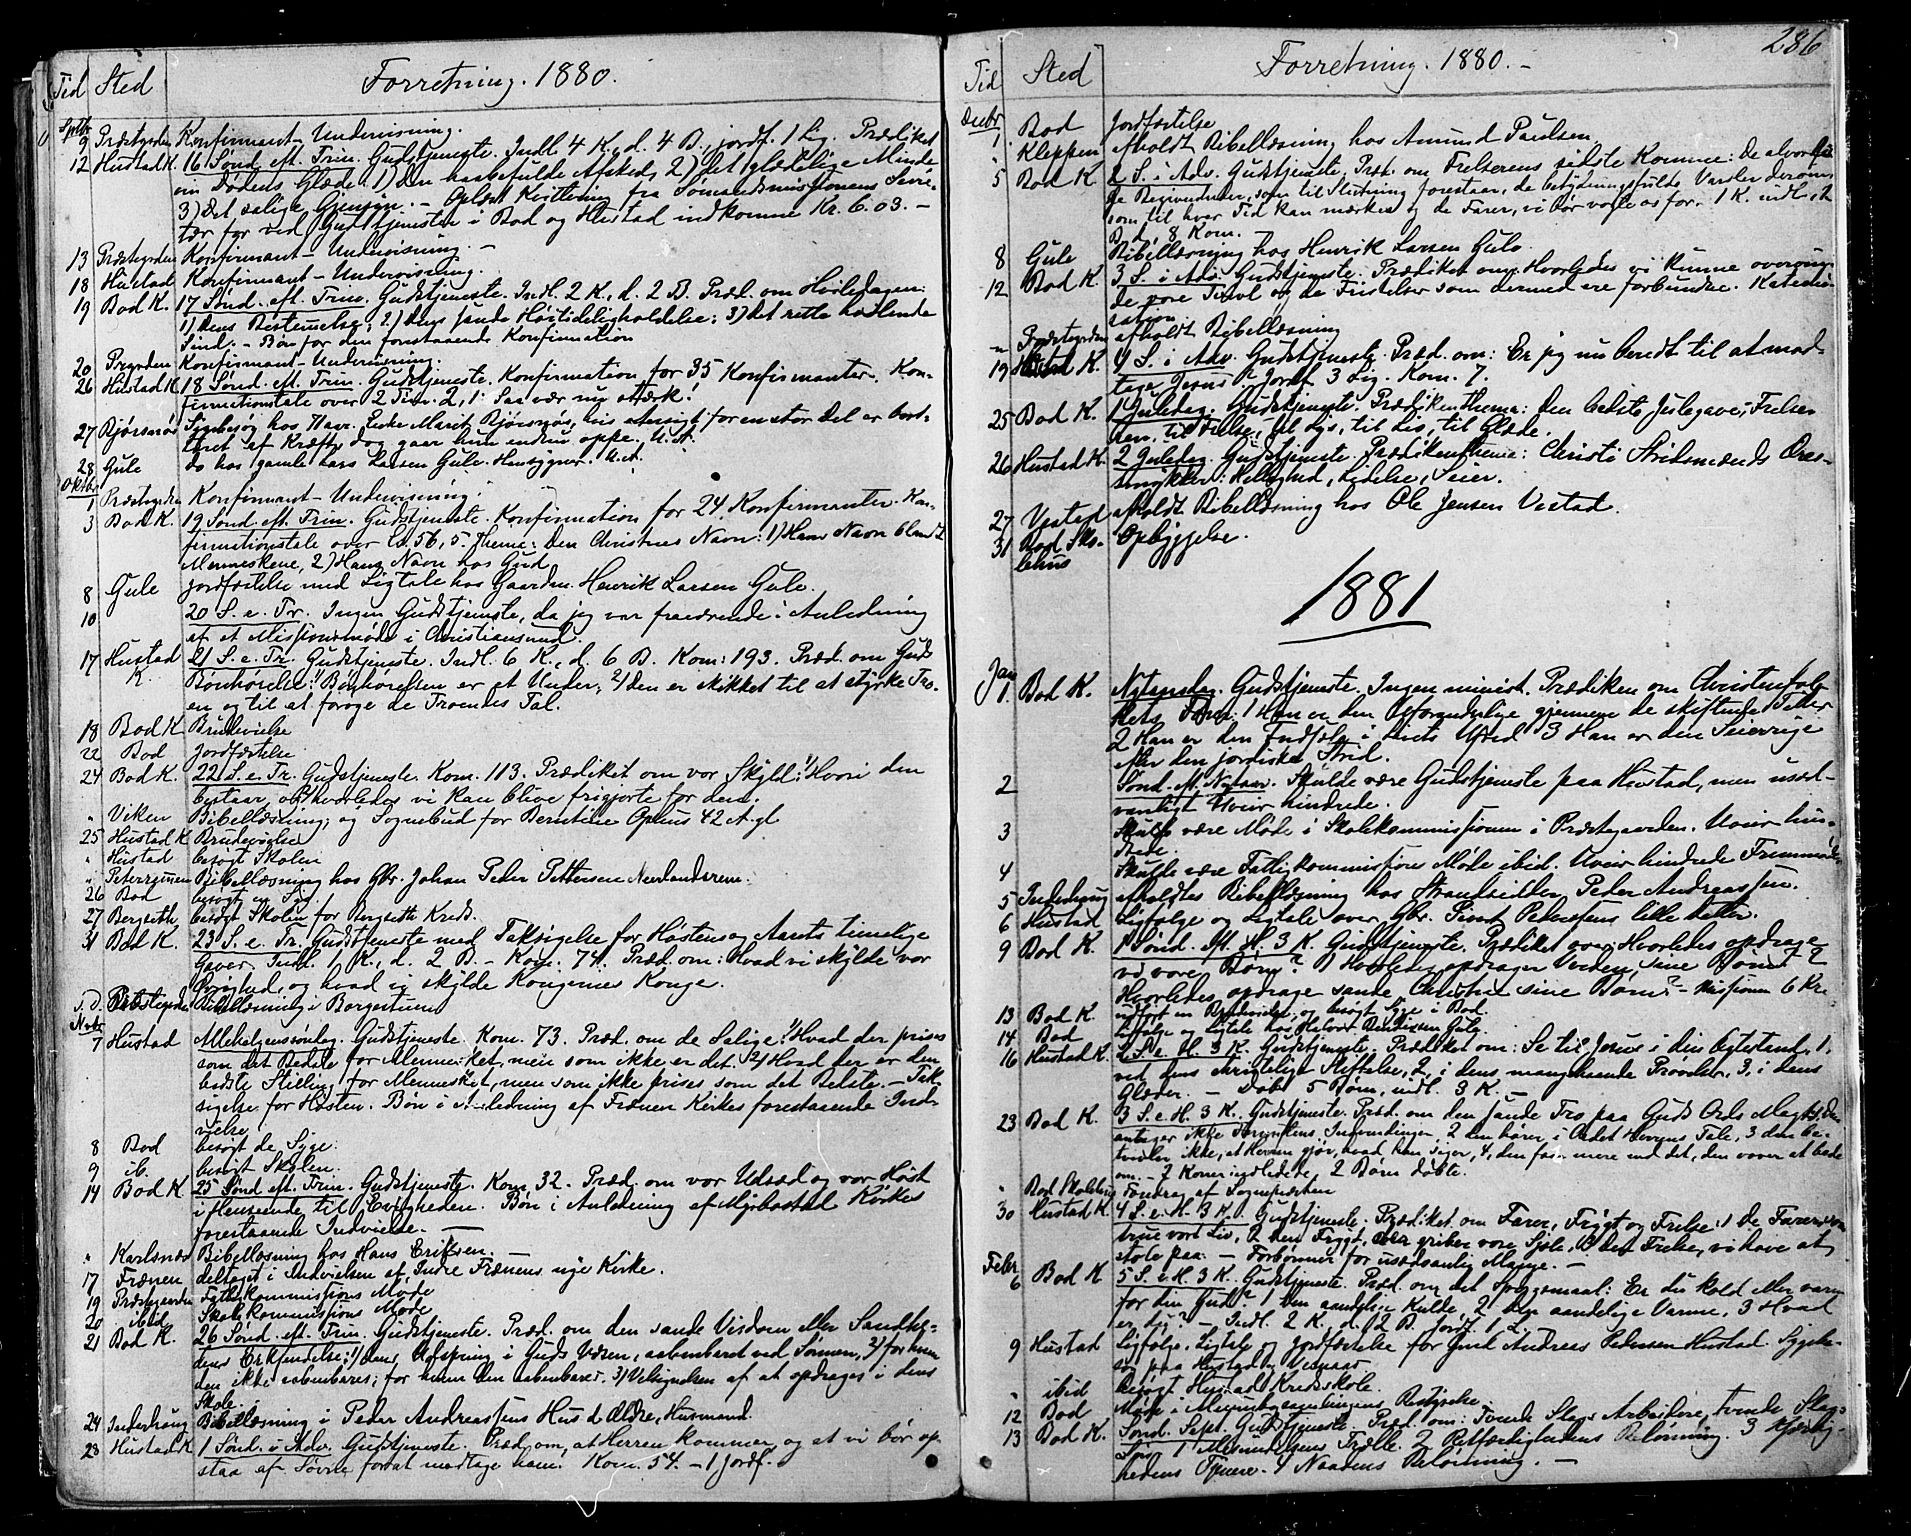 Tid Sted Forretning. 1880.
Sptbr
9 Præstegrden Konfirmant-Undervisning.
12 Hustad K. 16 Sønd. eft. Trin. Gudstjeneste. Indl. 4 K., d. 4 B., jordf. 1 Lig. Prædiket
om Dødens Glæde: 1) Den haabefulde Afsked, 2) det glædelige Minde
3) Det salige Gjensyn. - Oplæst Kvittering fra Sømandsmissionens Sekre-
tær for ved Gudstjenester i Bod og Hustad indkomne Kr. 6.03. -
13 Præstegrden Konfirmant-Undervisning. -
18 Hustad Konfirmant-Undervisning.
19 Bod K. 17 Sønd. eft. Trin. Gudstjeneste. Indl. 2 K., d. 2 B. Præd. om Hviledagen:
1) Dens Bestemmelse; 2) Dens sande Høitideligholdelse; 3) Det rette hvilende
Sind. - Bøn for den forestaaende Konfirmation
20 Prgrden Konfirmant-Undervisning.
26 Hustad K. 18 Sønd. eft. Trin. Gudstjeneste. Konfirmation for 35 Konfirmanter. Kon-
firmationstale over 2 Tim. 2, 1: Saa vær nu stærk!
27 Bjørsnøs Sygebesøg hos Marit Bjørsnøs, hvis for en stor Del er bort-
tæret af Kræft, dog gaar hun endnu oppe.
28 Gule do hos gamle Lars Larsen Gule.
Oktbr
1 Præstegrden Konfirmant-Undervisning.
3 Bod K. 19 Sønd. eft. Trin. Gudstjeneste. Konfirmation for 24 Konfirmanter. Kon-
firmationstale over Es. 56, 5. Thema: Den Christnes Navn: 1) Hans Navn blandt
Menneskene, 2) Hans Navn hos Gud
8 Gule Jordfæstelse med Ligtale hos Gaardm. Henrik Larsen Gule.
10 20 S. e. Tr. Ingen Gudstjeneste, da jeg var fraværende i Anledning
af et Missionsmøde i Christiansund.
17 Hustad 21 S. e. Tr. Gudstjeneste. Indl. 6 K., d. 6 B. Kom: 193. Præd. om Guds
K. Bønhørelse: 1) Bønhørelsen er et Under; 2) Den er skikket til at styrke Tro-
en og til at forøge de Troendes Tal.
18 Bod K Brudevielse
22 Bod Jordfæstelse
24 Bod K. 22 S. e. Tr. Gudstjeneste. Kom. 113. Prædiket om vor Skyld: 1) Hvori den
bestaar, og 2) hvorledes vi kan blive frigjorte for den.
" Viken Bibellæsning; og Sognebud for Berntine 42 A. gl
25 Hustad K Brudevielse
" Hustad besøgt Skolen
" Bibellæsning hos Gbr. Johan Peder Pettersen
26 Bod besøgt en Syg.
27 Bergsith besøgt Skolen for Bergsith Kreds.
31 Bod K. 23 S. e. Tr. Gudstjeneste med Taksigelse for Høsten og Aarets timelige
Gaver. Indl. 1 K., d. 2 B. - Kom. 74. Præd. om: Hvad vi skylde vor
Øvrighed, og hvad vi skylde Kongernes Konge.
s. D. Præstegrden Bibellæsning i Borgestuen
Novbr
7 Hustad Allehelgenssøndag. Gudstjeneste. Kom. 73. Præd. om de Salige: 1) Hvad der prises
som det Bedste for Mennesket, men som ikke er det. 2) Hvad der er den
bedste Stilling for Mennesket, men som ikke prises som det Bedste. - Tak-
sigelse for Høsten. Bøn i Anledning af Frænen Kirkes forestaaende Ind-
vielse
8 Bod besøgt de Syge.
9 ib. besøgt Skolen.
14 Bod K 25 Sønd. eft. Trin. Gudstjeneste. Kom. 32. Præd. om vor Udsæd og vor Høst
i Henseende til Evigheden. Bøn i Anledning af Myrbostad Kirkes
forestaaende Indvielse. -
" Karlsnæs Bibellæsning hos Hans Eriksen.
17 Frænen deltaget i Indvielsen af Indre Frænens nye Kirke.
19 Præstegaarden Fattigkommissions Møde
20 ibid Skolekommissions Møde
21 Bod K. 26 Sønd. eft. Trin. Gudstjeneste. Præd. om den sande Visdom eller Sandhe-
dens Erkjendelse: 1) dens Udspring i Guds Væsen, aabenbaret ved Sønnen, 2) for hvem
den ikke aabenbares; for hvem den aabenbares. 3) Velsignelsen af at opdrages i dens
Skole.
24 Inderhaug Bibellæsning i Peder Andreassens Hus d. Ældre, Husmand.
28 Hustad K 1 Sønd. i Adv. Gudstjeneste. Præd. om, at Herren kommer, og at vi bør op-
staa af Søvne for at modtage ham. Kom. 54. - 1 Jordf.
286
Tid Sted Forretning. 1880. -
Decbr
1 Bod Jordfæstelse
" Kleppen afholdt Bibellæsning hos Amund Paulsen
5 Bod K 2 S. i Adv. Gudstjeneste. Præd. om Frelserens sidste Komme: De alvorsful-
de Begivenheder, som til Slutning forestaar, de betydningsfulde Varsler derom,
som til hver Tid kan mærkes og de Farer, vi bør vogte os for. 1 K. indl. 2
B. d. 8 Kom. -
8 Gule Bibellæsning hos Henrik Larsen Gule.
12 Bod K. 3 S. i Adv. Gudstjeneste. Prædiket om: Hvorledes vi kunne overvin-
de vore Tvivl og de Fristelser som dermed ere forbundne. Katechi-
sation.
" Præstegrden afholdt Bibellæsning
19 Hustad K. 4 S. i Adv. Gudstjeneste. Præd. om: Er jeg nu beredt til at mod-
tage Jesus? Jordf. 3 Lig. Kom. 7.
25 Bod K. 1 Juledag. Gudstjeneste. Prædikenthema: Den bedste Julegave: Frelse-
ren, til Frelse, til Lys, til Liv, til Glæde.
26 Hustad K. 2 Juledag. Gudstjeneste. Prædikenthema: Christi Stridsmænds Æres-
smykker: Hellighed, Lidelse, Seier.
27 Vestad afholdt Bibellæsning hos Ole Jensen Vestad.
31 Bod Sko- Opbyggelse.
lehus
1881
Jan
1. Bod K. Nytaarsdag. Gudstjeneste. Ingen minist. Prædiken om Christenfol-
kets Herre: 1 Han er den Uforanderlige gjennem de skiftende Tider
2 Han er den Trofaste i Livets Ufred 3 Han er den Seierrige
efter den jordiske Strid.
2 Sønd. eft. Nytaar. Skulde være Gudstjeneste paa Hustad, men usæd-
vanligt Uveir hindrede.
3 Skulde være Møde i Skolekommissionen i Præstegaarden. Uveir hin-
drede.
4 Skulde være Fattigkommissions Møde ibid. Uveir hindrede
5 Inderhaug afholdtes Bibellæsning hos Strandsidder Peder Andreassen.
6 Hustad Ligfølge og Ligtale over Gbr. Sivert Pederssens lille Datter.
9 Bod K. 1 Sønd. eft. H. 3 K. Gudstjeneste. Prædiket over: Hvorledes opdrage
vi vore Børn? 1 Hvorledes opdrager Verden sine Børn? 2
Hvorledes opdrage sande Christne sine Børn? - Missionen 6 Kr. -
13 Bod K. udført en Brudevielse, og besøgt Syge i Bod.
14 Bod Ligfølge og Ligtale hos Halvor
16 Hustad K. 2 S. e. H. 3 K. Gudstjeneste. Prædiket om: Se til Jesus i din Egtestand, 1,
ved dens christelige Stiftelse, 2, i dens mangehaande Prøvelser, 3, i dens
Glæder. - Døbt 5 Børn, indl. 3 K. -
23 Bod K. 3 S. e. H. 3 K. Gudstjeneste. Præd. om den sande Tro paa Guds Ords Magt: 1, den
antager ikke Fornuftens Indvendinger, 2 den hører i Ordet Herrens Tale, 3 den be-
tvivler ikke, at Herren gjør, hvad han siger, 4, den faar mere end det, den vover at bede
om. - 2 Koner indledede, 2 Børn døbte.
" Bod Skolehus Foredrag af Sognepræsten
30 Hustad K. 4 S. e. H. 3 K. Gudstjeneste. Prædiket om Farer, Frygt og Frelse: 1 De Farer som
true vort Liv, 2 den Frygt, der griber vore Sjæle, 3 den Frelse, vi have at
stole paa. - Forbønner for usædvanlig Mange. -
Febr
6 Bod K 5 S. e. H. 3 K. Gudstjeneste. Præd. om det Spørgsmaal: Er du kold eller varm
for din Gud? 1 Den aandelige Kulde, 2 Den aandelige Varme, 3 Hvad
er du? - Indl. 2 K., d. 2 B. Jordf. 1 L.
9 Hustad Ligfølge, Ligtale og Jordfæstelse for Gmd Andreas Pedersen Hustad. Sygebe-
søg paa Hustad og
" ibid besøgt Hustad Kredsskole.
12 Bod Møde i Bestyrelse.
13 Bod K. Sønd. Sept. Gudstjeneste. Præd. om: Tvende Slags Arbeidere, tvende Slags
Løn: 1 Trælle. 2 Retfærdighedens Belønning. 3 Kjærlig-
hedens Tjenere. 4 Naadens Belønning. -